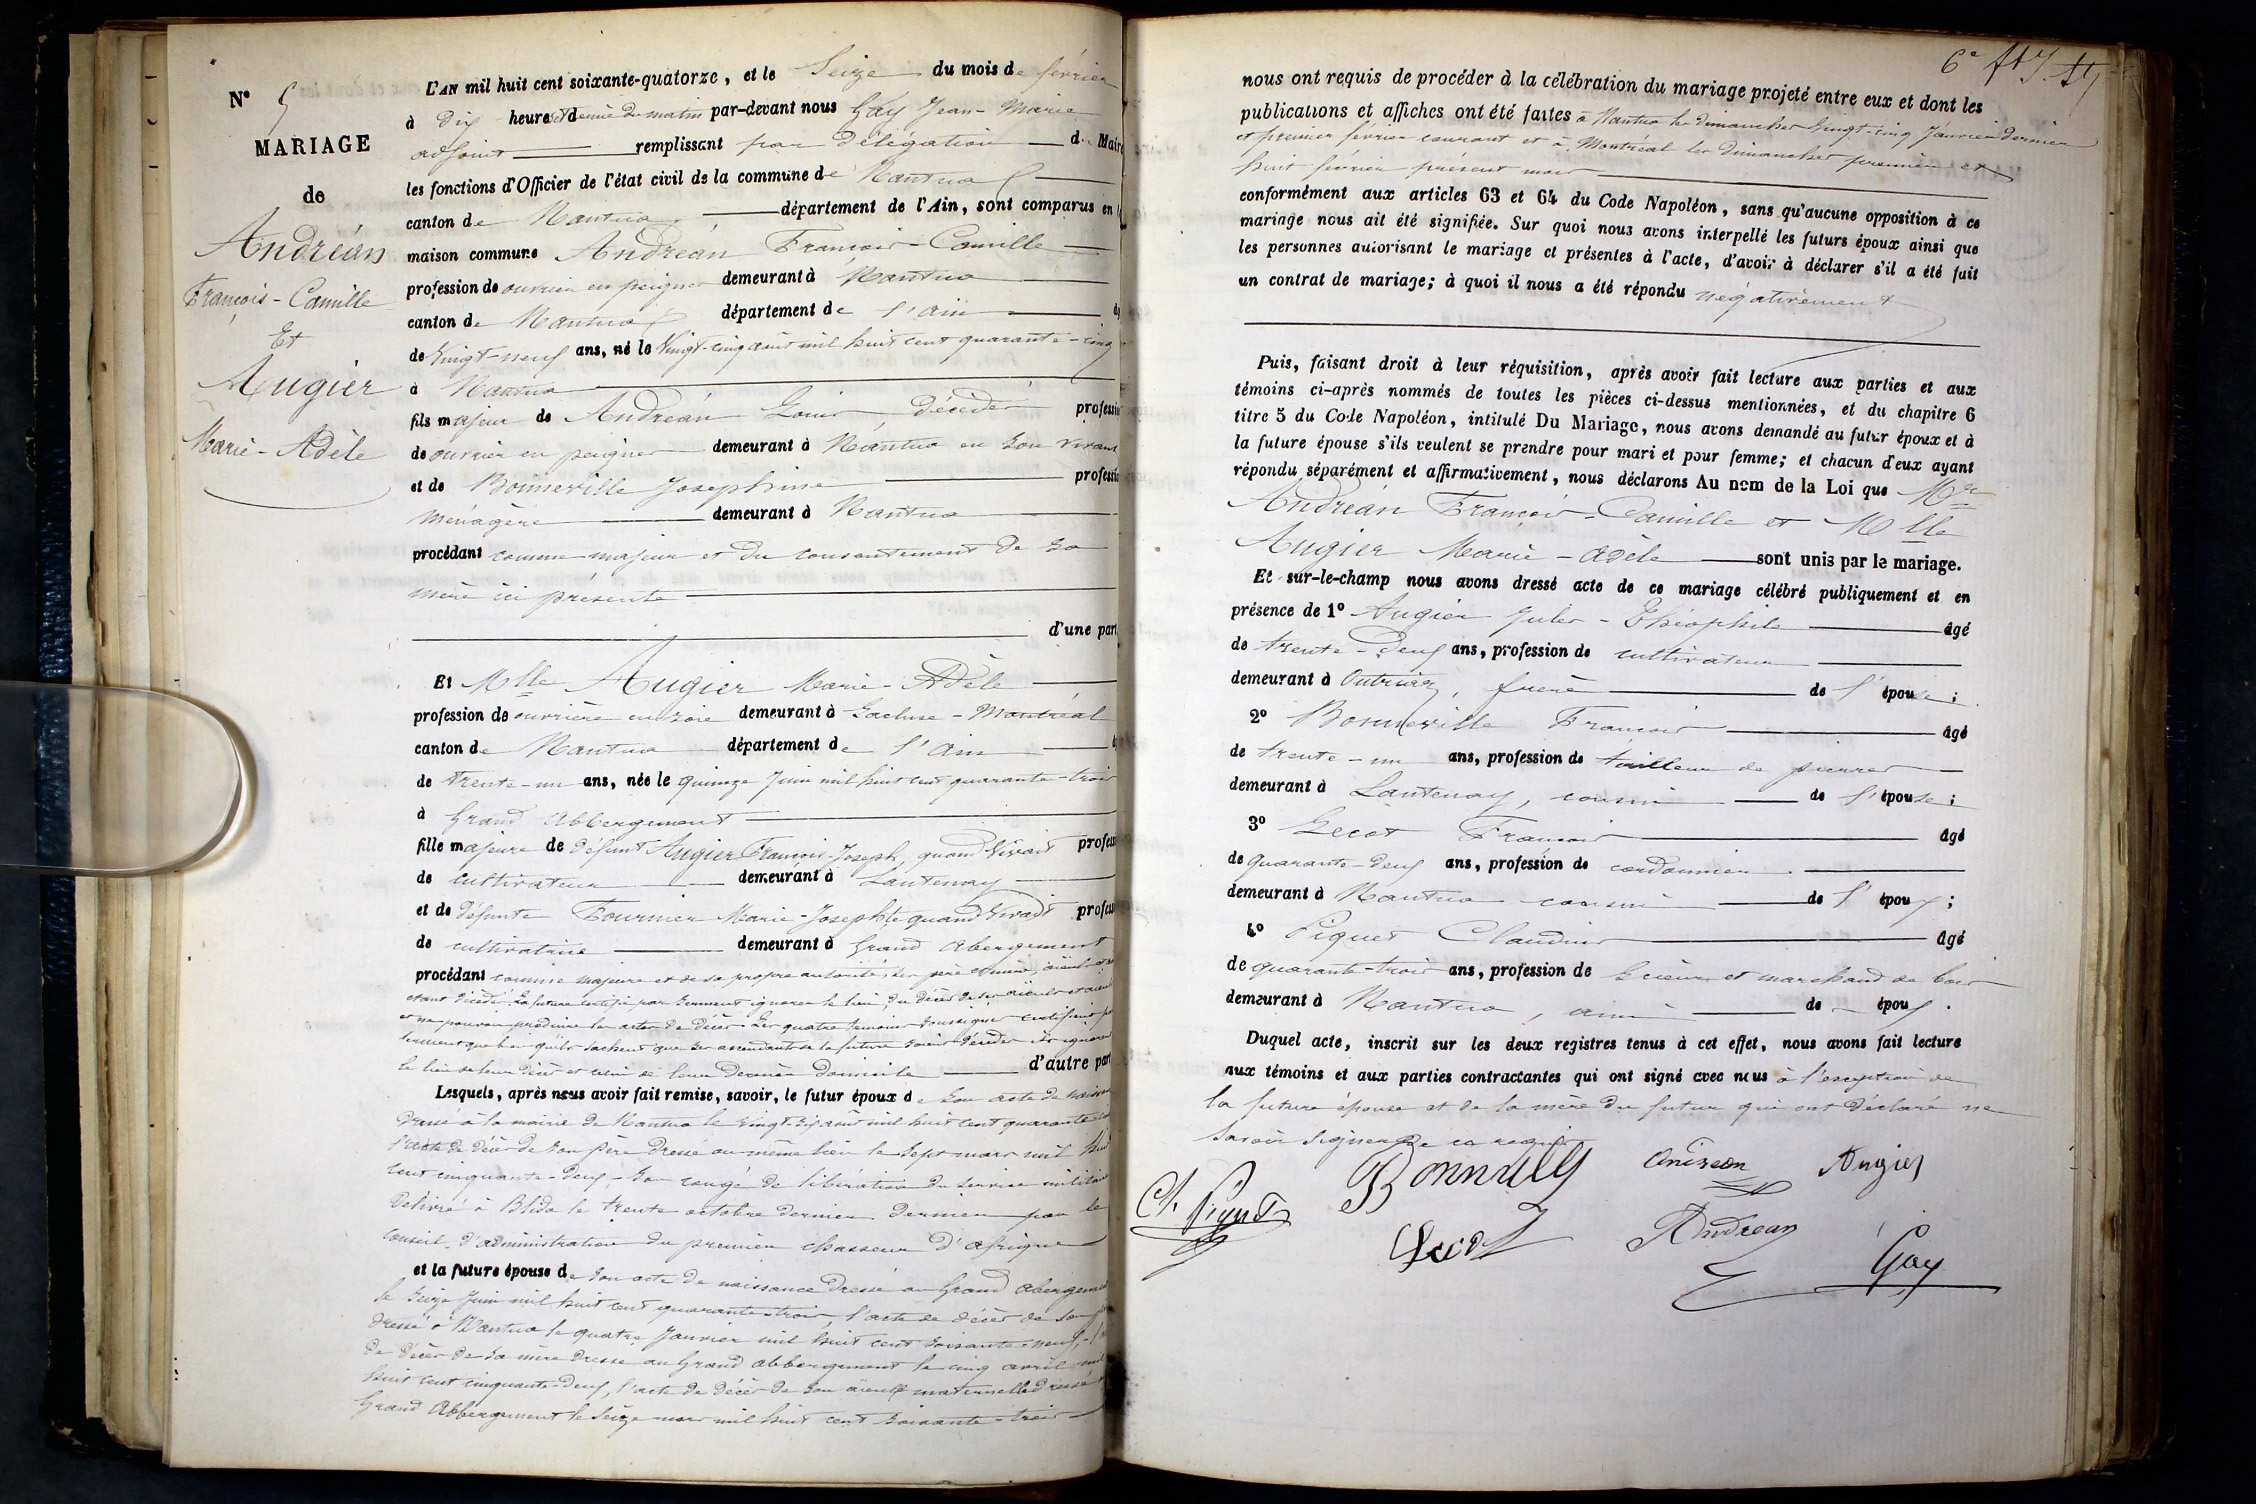 N° 5
MARIAGE
de
Andréan
François-Camille
Et
Augier
Marie-Adèle
L'AN mil huit cent soixante-quatorze, et le Seize du mois de février
à Dix heures et demie du matin par-devant nous Gay Jean-Marie
adjoint remplissant par délégation d. Maire
les fonctions d'Officier de l'état civil de la commune de Nantua
canton de Nantua département de l'Ain, sont comparus en la
maison commune Andréan François-Camille
profession de ouvrier en peignes demeurant à Nantua
canton de Nantua département de l'ain
de Vingt-neuf ans, né le Vingt-cinq août mil huit cent quarante-cinq
à Nantua
fils majeur de Andréan Louis, décédé professio
de ouvrier en peignes demeurant à Nantua en son vivant
et de Bonneville Josephine professio
ménagère demeurant à Nantua
procédant comme majeur et du consentement de sa
mère ici présente
d'une part
Et Mlle Augier Marie-Adèle
profession de ouvrière en soie demeurant à Montréal
canton de Nantua département de l'ain
de trente-un ans, née le quinze Juin mil huit cent quarante-trois
à Grand Abbergement
fille majeure de défunt Augier François-Joseph, quand vivait profess
de cultivateur demeurant à Lantenay
et de défunte Fournier Marie-Josephte quand vivait profess
de cultivatrice demeurant à Grand Abergement
procédant comme majeure et de sa propre autorité, ses père et mère, aïeuls
étant décédés. La future certifie par serment ignorer le lieu du décès de ses aïeuls
et ne pouvoir produire les actes de décès. Les quatre témoins soussignés certifient
serment que bien qu'ils sachent que les ascendants de la future soient décédés ils ignorent
le lieu de leur décès et celui de leur dernier domicile d'autre part
Lesquels, après nous avoir fait remise, savoir, le futur époux de son acte de naissance
dressé à la mairie de Nantua le vingt-six août mil huit cent quarante
l'acte de décès de son père dressé au même lieu le sept mars mil huit
cent cinquante-deux, son congé de libération du service militaire
délivré à Blida le trente octobre dernier dernier par le
Conseil d'administration du premier chasseur d'afrique
et la future épouse de son acte de naissance dressé au Grand Abergement
le seize Juin mil huit cent quarante-trois, l'acte de décès de son
dressé à Nantua le quatre Janvier mil huit cent soixante-neuf,
de décès de sa mère dressé au Grand abbergement le cinq avril mil
huit cent cinquante-deux, l'acte de décès de son aïeule maternelle dressé
Grand Abbergement le seize mars mil huit cent soixante-trois
6e
nous ont requis de procéder à la célébration du mariage projeté entre eux et dont les
publications et affiches ont été faites à Nantua les dimanches Vingt-cinq Janvier dernier
et premier février courant et à Montréal les dimanches premier et
huit février présent mois
conformément aux articles 63 et 64 du Code Napoléon, sans qu'aucune opposition à ce
mariage nous ait été signifiée. Sur quoi nous avons interpellé les futurs époux ainsi que
les personnes autorisant le mariage et présentes à l'acte, d'avoir à déclarer s'il a été fait
un contrat de mariage; à quoi il nous a été répondu négativement
Puis, faisant droit à leur réquisition, après avoir fait lecture aux parties et aux
témoins ci-après nommés de toutes les pièces ci-dessus mentionnées, et du chapitre 6
titre 5 du Code Napoléon, intitulé Du Mariage, nous avons demandé au futur époux et à
la future épouse s'ils veulent se prendre pour mari et pour femme; et chacun d'eux ayant
répondu séparément et affirmativement, nous déclarons Au nom de la Loi que Mr
Andréan François-Camille et Mlle
Augier Marie-Adèle sont unis par le mariage.
Et sur-le-champ nous avons dressé acte de ce mariage célébré publiquement et en
présence de 1° Augier Jules-Théophile âgé
de trente-deux ans, profession de cultivateur
demeurant à Outriaz, frère de l'épouse;
2° Bonneville François âgé
de trente-un ans, profession de tailleur de pierres
demeurant à Lantenay, cousin de l'épouse;
3° Gecot François âgé
de quarante-deux ans, profession de cordonnier
demeurant à Nantua cousin de l'époux;
4° Piquet Claudius âgé
de quarante-trois ans, profession de scieur et marchand de bois
demeurant à Nantua, ami de époux.
Duquel acte, inscrit sur les deux registres tenus à cet effet, nous avons fait lecture
aux témoins et aux parties contractantes qui ont signé avec nous à l'exception de
la future épouse et de la mère du futur qui ont déclaré ne
savoir signer de ce requis
Andréan Augier
Cl. Piquet
Andrean
Gay